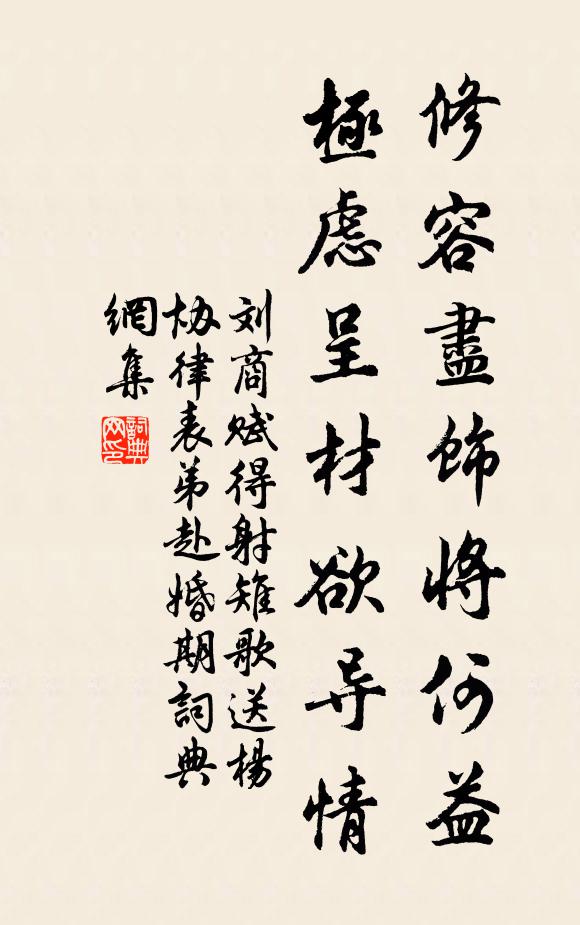 修容盡飾將何益
極慮呈材欲导情
刘商赋得射雉歌送楊
协律表弟赴婚期詞典
網集
詞典
网印